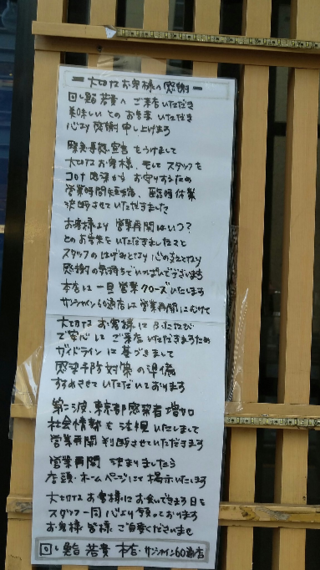 大切なお客様へ感謝
回し鮨 若貴へ ご来店いただき
美味しい とのお言葉 いただき
心より 感謝 申し上げます
緊急事態宣言 をうけまして
大切なお客様、そして スタッフを
コロナ 感染から お守りするため
営業時間短縮、臨時休業
決断させていただきました
お客様より 営業再開はいつ?
とのお言葉をいただきましたこと
スタッフのはげみとなり 心の支えとなり
感謝の気持ちでいっぱいでございます
本店は 一旦 営業 クローズいたします
サンシャイン60通店は 営業再開にむけて
大切なお客様に ふたたび
ご安心に ご来店 いただきますため
ガイドラインに 基づきまして
感染予防対策の準備
すすめさせて いただいております
第二波、東京都感染者増加
社会情勢を 注視 いたしまして
営業再開 判断させていただきます
営業再開 決まりましたら
店頭・ホームページにて 掲示いたします
大切なお客様に お会いできます日を
スタッフ一同 心より 願っております
お客様 皆様 ご自愛くださいませ
回し鮨 若貴 本店・サンシャイン60通店